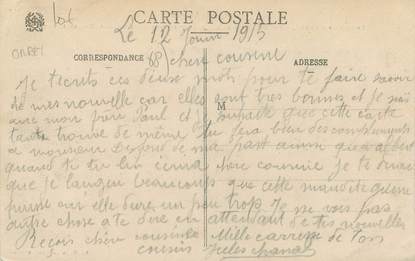 lot
CARTE POSTALE
Le 12 Juin 1915
ORBEY
CORRESPONDANCE
68
ADRESSE
chere cousine
Je tecrits ces deuse mots pour te faire savoir
de mes nouvelle car elles sont tres bonnes et je suis
avec mon père Paul et je souhaite que cette carte
M
taite trouve de même Tu fera bien des compliments
a monsieur de ma part ainsi que a
quand tu lui écrira chere cousine je te dirai
que je langui beaucoups que cette maudite guerre
finisse car elle dure un peu trop Je ne vois pas
autre chose a te dire en attendant de tes nouvelles
Reçois chère cousine Mille caresse de ton
cousin Jules